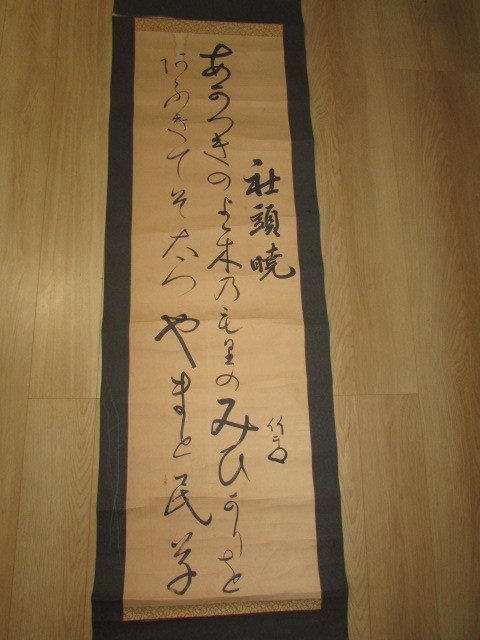 社頭暁
竹
あかつきのよゝ木乃も里のみひかりを
阿ふきてそ太つやまと民草